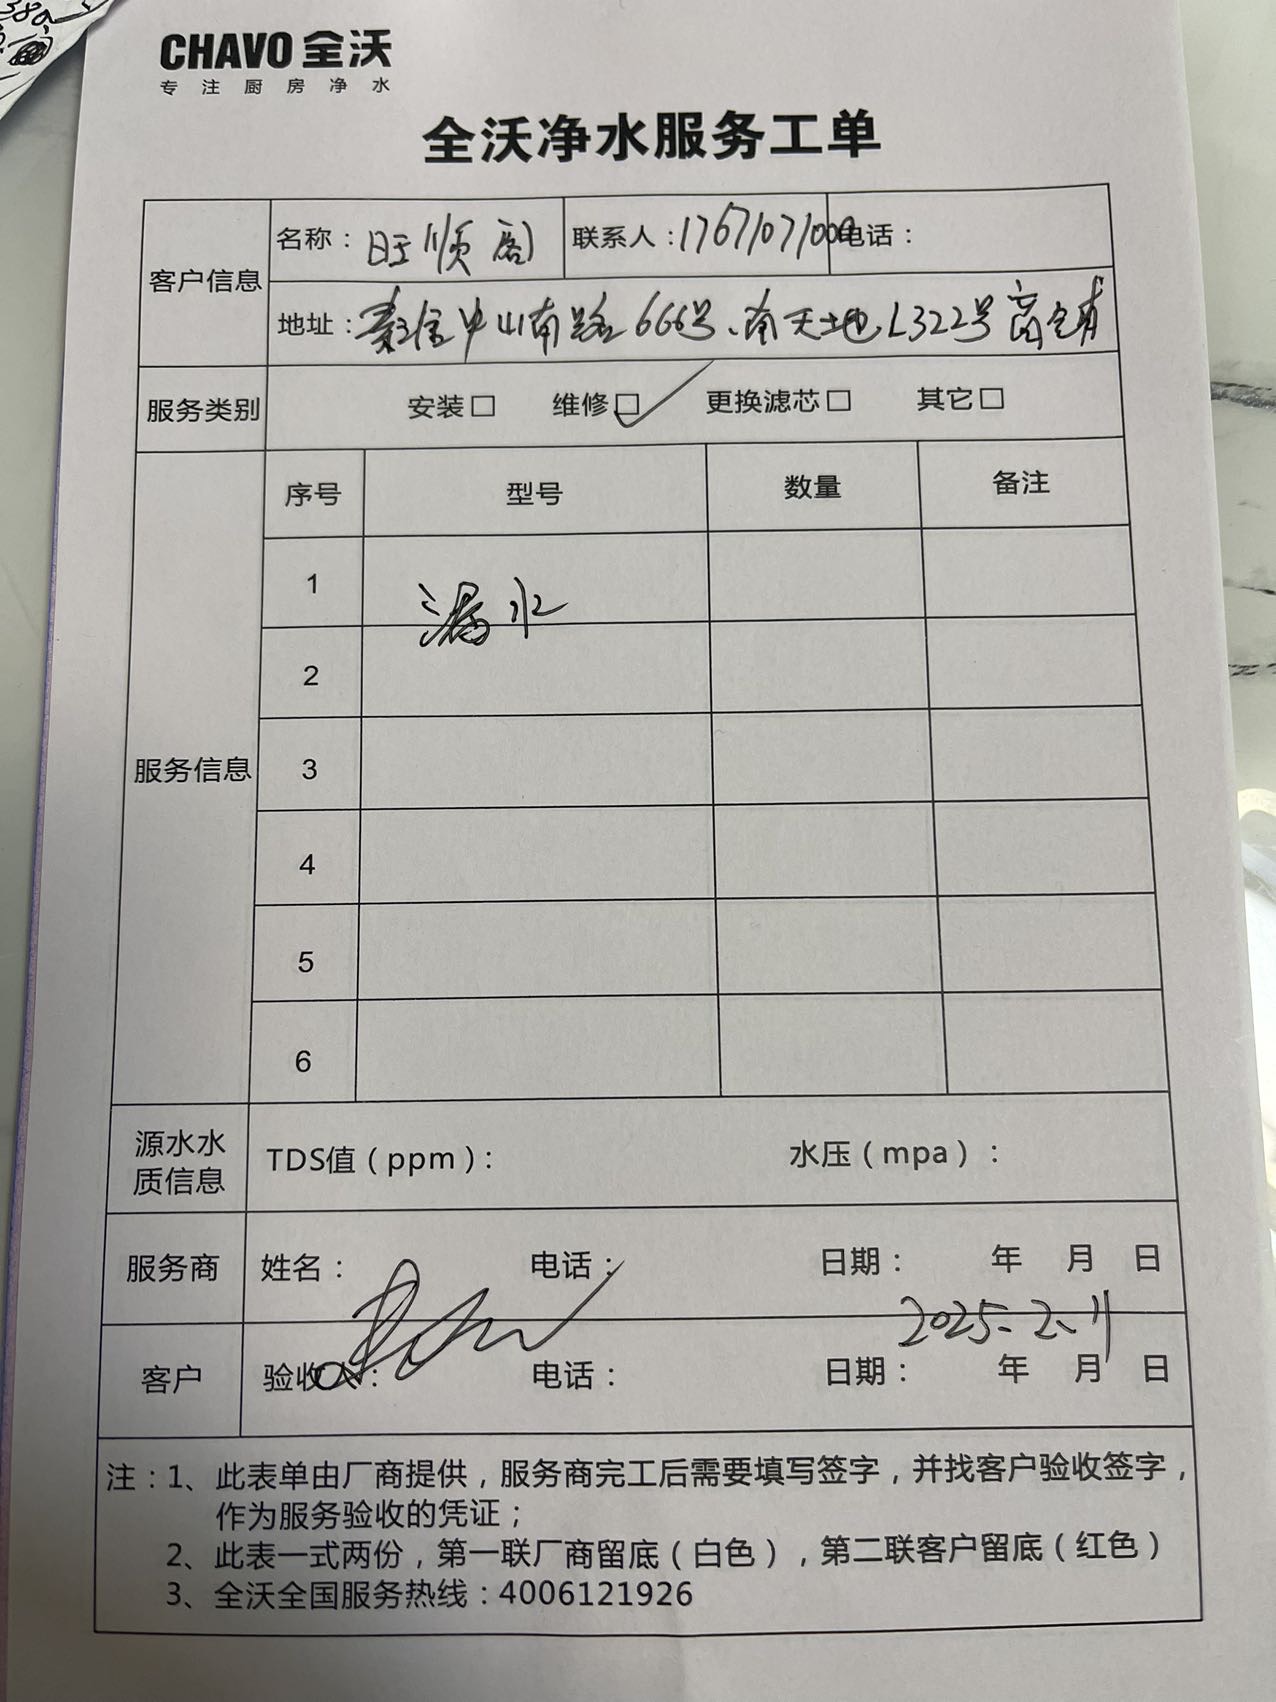 CHAVO 全沃
专注厨房净水
全沃净水服务工单
客户信息
名称：旺顺阁 联系人：17671071000 电话：
地址：秦淮中山南路666号、南天地、L322号商铺
服务类别 安装□ 维修☑ 更换滤芯□ 其它□
服务信息
序号 型号 数量 备注
1 漏水
2
3
4
5
6
源水水质信息 TDS值（ppm）： 水压（mpa）：
服务商 姓名： 电话： 日期： 年 月 日
2025.2.11
客户 验收人： 电话： 日期： 年 月 日
注：1、此表单由厂商提供，服务商完工后需要填写签字，并找客户验收签字，
作为服务验收的凭证；
2、此表一式两份，第一联厂商留底（白色），第二联客户留底（红色）
3、全沃全国服务热线：4006121926